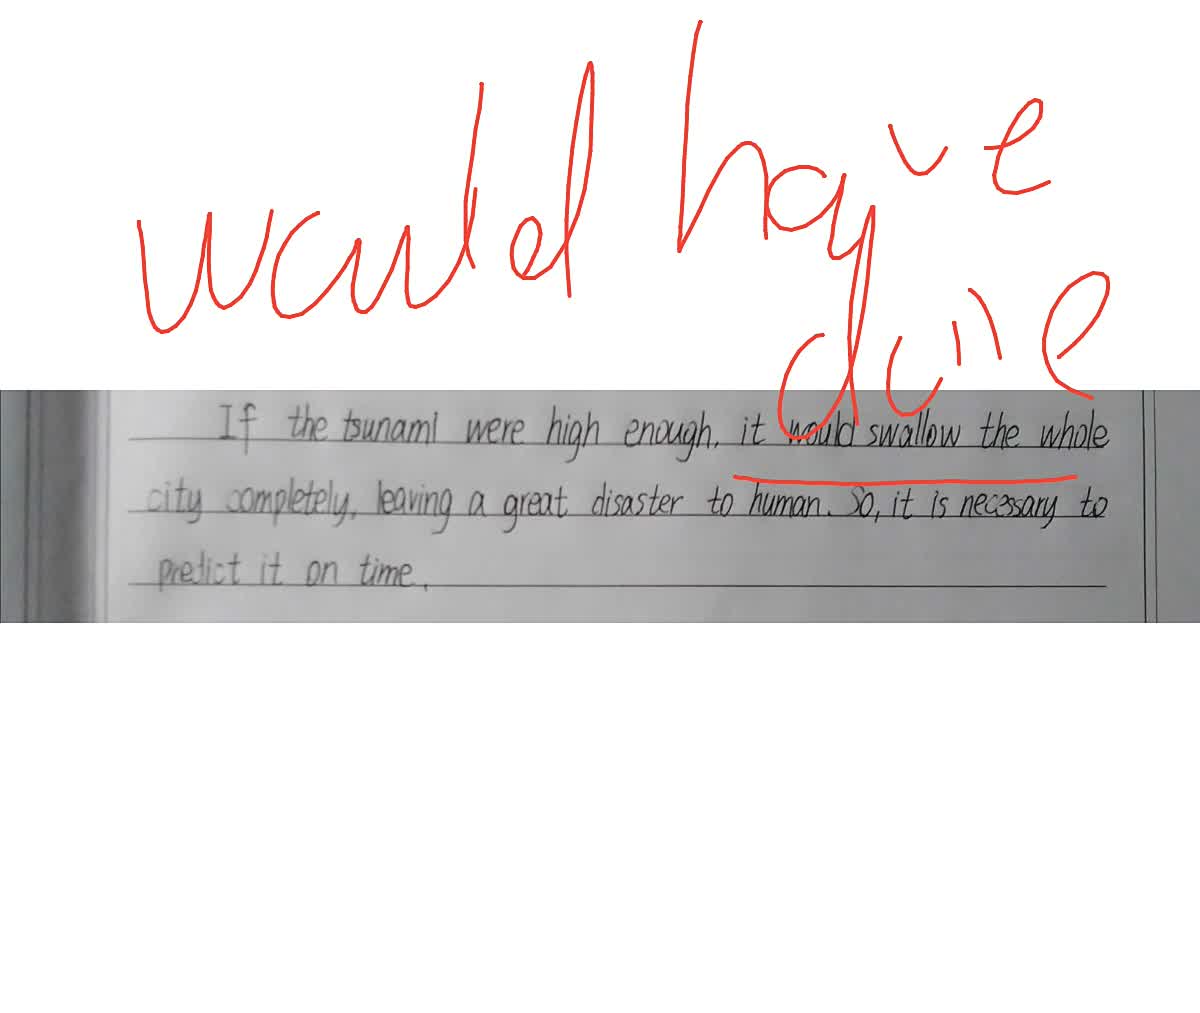 would have
done
If the tsunami were high enough, it would swallow the whole
city completely, leaving a great disaster to human. So, it is necessary to
predict it on time.